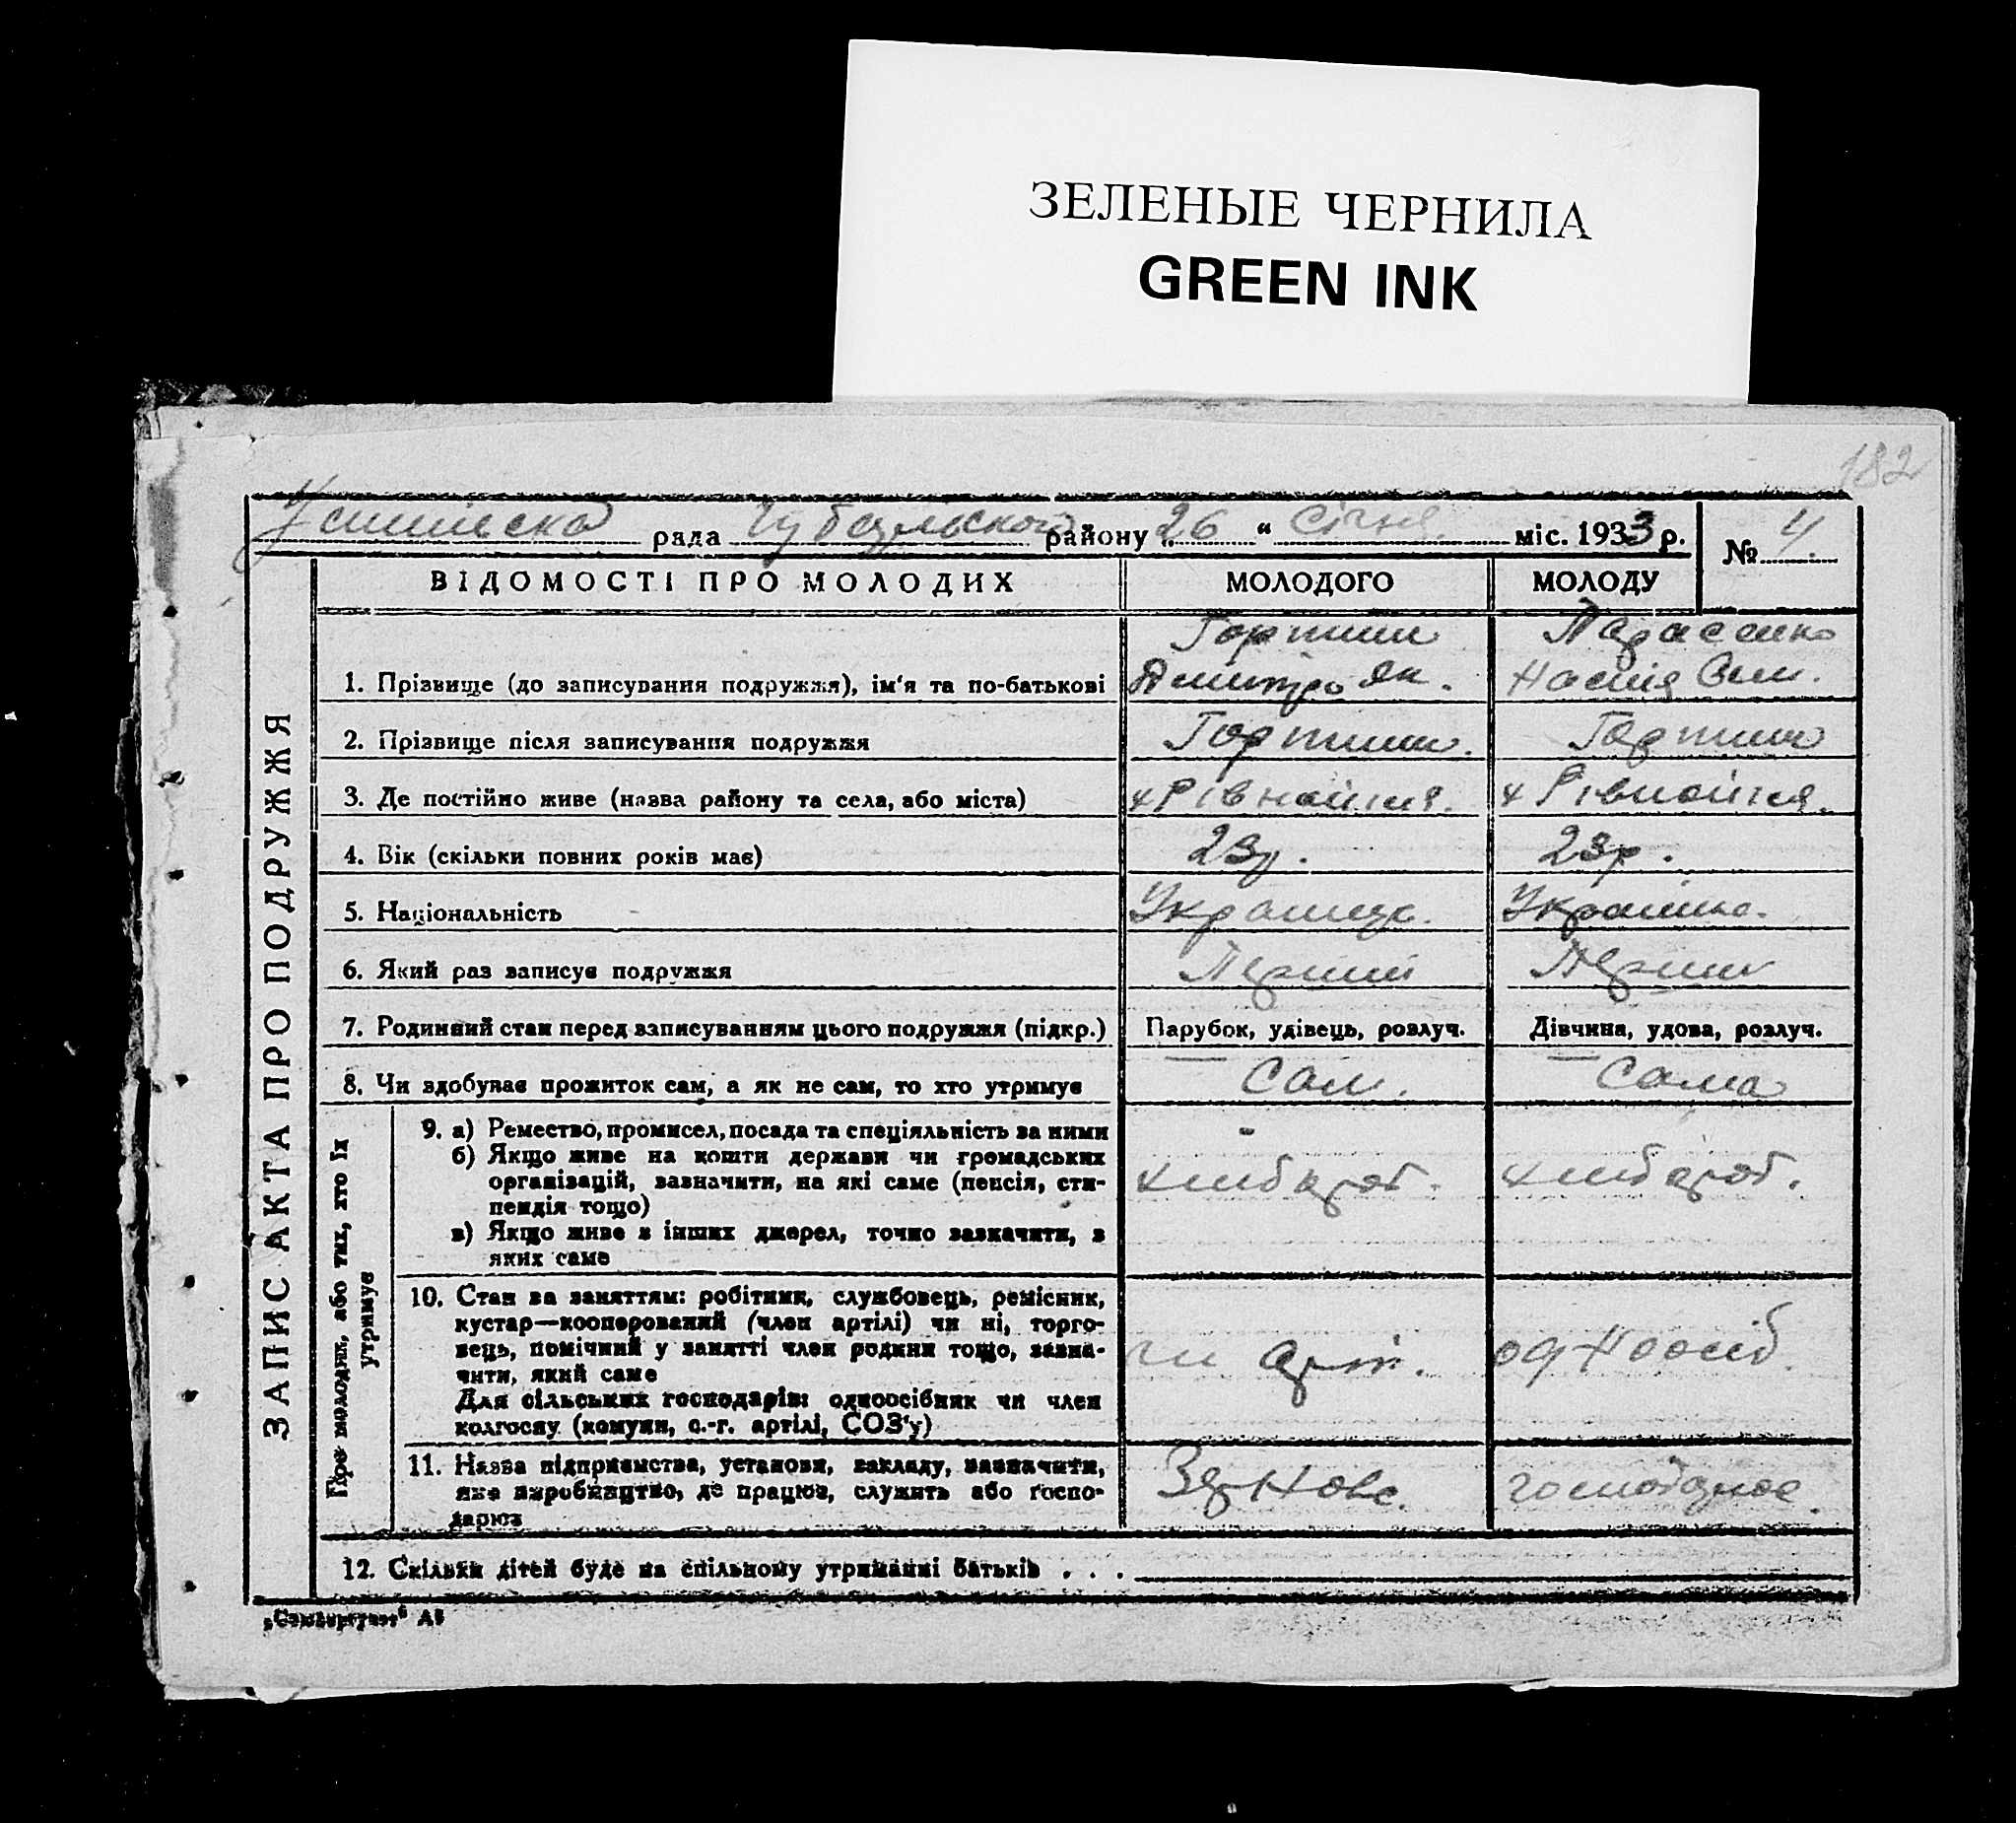 ЗЕЛЕНЫЕ ЧЕРНИЛА
GREEN INK
182
рада району „26“ Січня міс. 1933 р. № 4
ЗАПИС АКТА ПРО ПОДРУЖЖЯ
ВІДОМОСТІ ПРО МОЛОДИХ МОЛОДОГО МОЛОДУ
1. Прізвище (до записування подружжя), ім'я та по-батькові Дмитро Як. Настя
2. Прізвище після записування подружжя
3. Де постійно живе (назва району та села, або міста)
4. Вік (скільки повних років має) 23р. 23р.
5. Національність Українец. Українка.
6. Який раз записує подружжя Перший Перший
7. Родинний стан перед записуванням цього подружжя (підкр.) Парубок, удівець, розлуч. Дівчина, удова, розлуч.
8. Чи здобуває прожиток сам, а як не сам, то хто утримує Сам. Сама
Про молодих, або тих, хто їх утримує
9. а) Ремество, промисел, посада та спеціяльність за ними
б) Якщо живе на кошти держави чи громадських
організацій, зазначити, на які саме (пенсія, сти-
пендія тощо)
хлібороб. хлібороб.
в) Якщо живе з інших джерел, точно зазначити, з
яких саме
10. Стан за заняттям: робітник, службовець, ремісник,
кустар—кооперований (член артілі) чи ні, торго-
вець, помічний у занятті член родини тощо, зазна-
чити, який саме
чл арт. одноосіб.
Для сільських господарів: одноосібник чи член
колгоспу (комуни, с.-г. артілі, СОЗ'у)
11. Назва підприємства, установи, закладу, зазначити,
яке виробництво, де працює, служить або госпо-
дарює
12. Скільки дітей буде на спільному утриманні батьків . . .